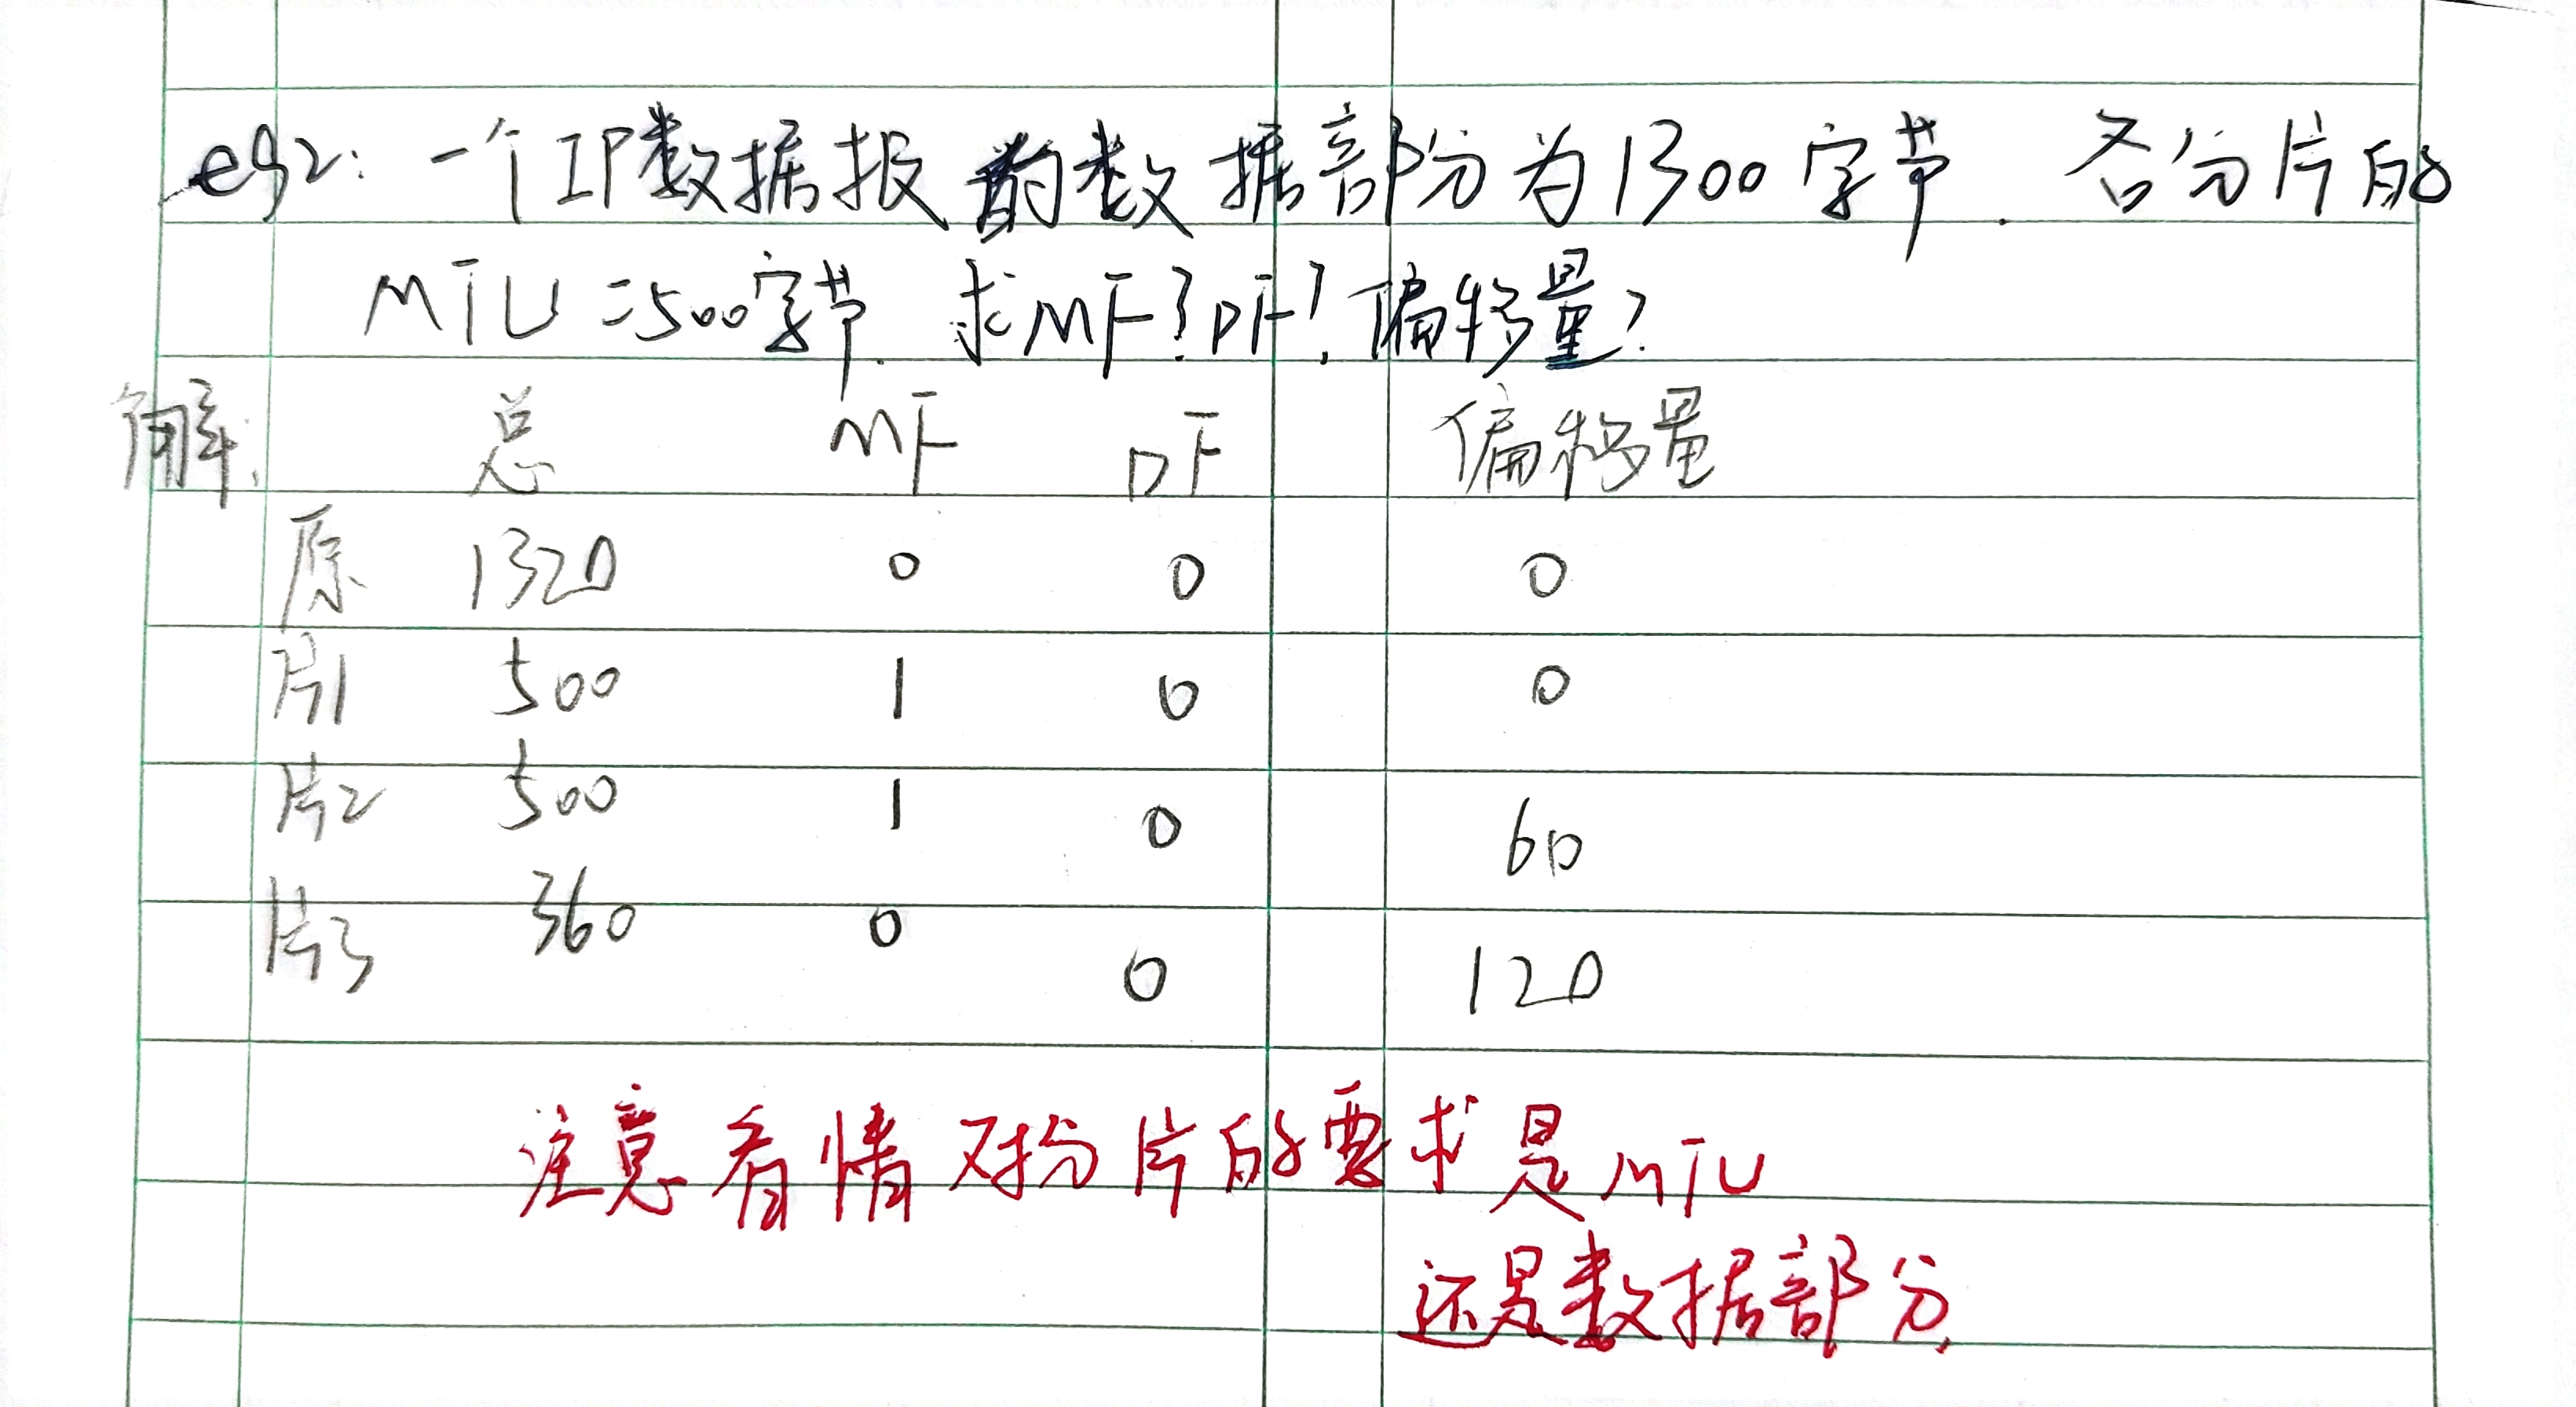 eg2: 一个IP数据报的数据部分为1300字节. 各分片的
MTU=500字节. 求MF? DF? 偏移量?
解: 总 MF DF 偏移量
原 1320 0 0 0
片1 500 1 0 0
片2 500 1 0 60
片3 360 0 0 120
注意看情对分片的要求是MTU
还是数据部分.